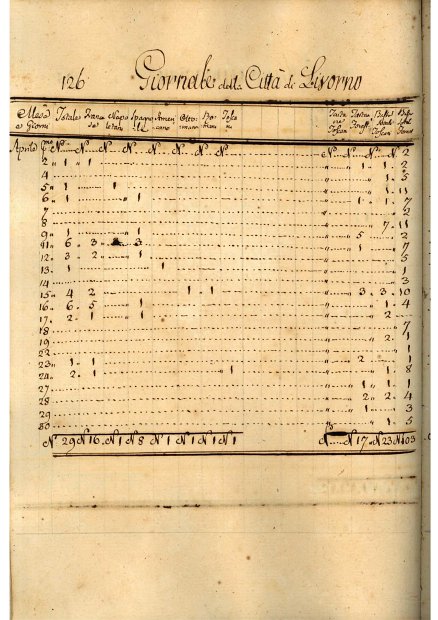 126 Giornale della Città di Livorno
Mese e Giorni Totale Napo letani Spagnu Ameri cano Otto mano Ro mano Tosca
Aprile N. N. N. N. N. N. N. N. N. N. N. N. 2
2 " 1 " 1 2
4 1
5 " 1 1 5
6 " 1 " 1 1 " 1 " 7
7 2
8 7 " 11
9 " 1 " 1 5 2
11 " 6 " 3 3 2 " 7
12 " 3 " 2 " 1 1
13 " 1 1 5
14 1
15 " 4 2 1 " 1 3 " 3 " 10
16 " 6 " 5 1 1 " 4
17 " 2 " 1 1 2
18 7
19 2 1
22 1
23 " 1 " 1 2 " 1
24 " 2 " 1 1 " 8
27 1 1
28 2 " 2 4
29 1 3
30 1 5
N. 29 N. 16 N. 1 N. 8 N. 1 N. 1 N. 1 N. 1 N. N. 17 N. 23 N. 103